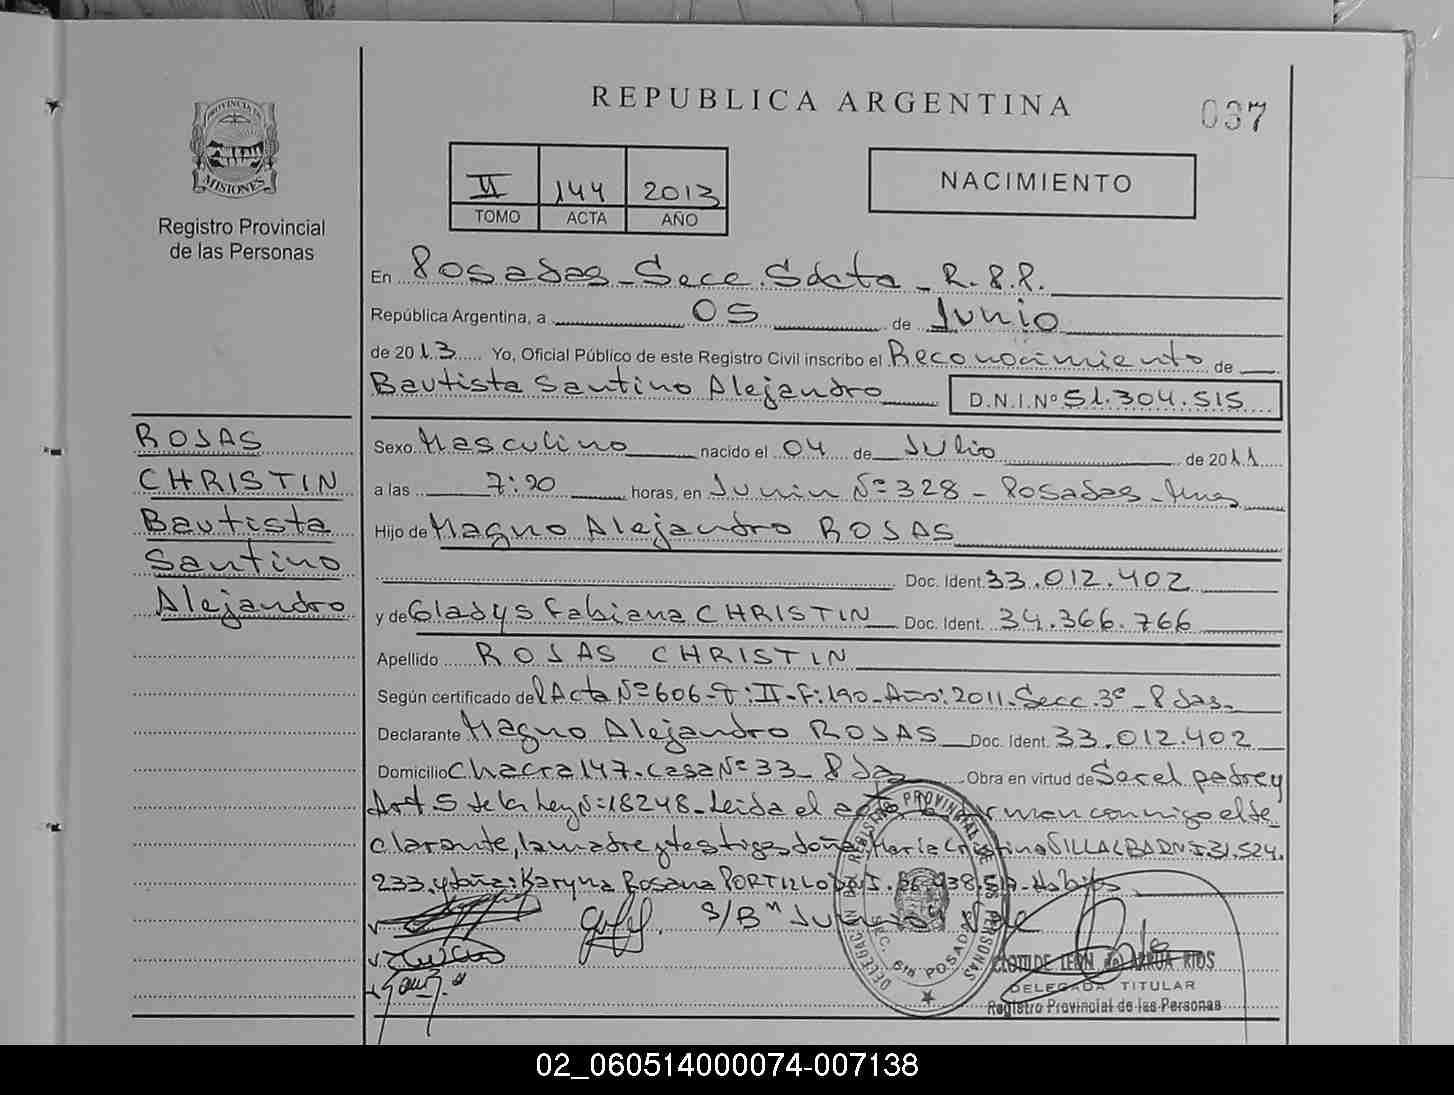 REPUBLICA ARGENTINA
037
PROVINCIA DE
MISIONES
Registro Provincial
de las Personas
II 144 2013
TOMO ACTA AÑO
NACIMIENTO
En Posadas - Secc. Sexta - R.P.P.
República Argentina, a 05 de Junio
de 2013 Yo, Oficial Público de este Registro Civil inscribo el Reconocimiento de
Bautista Santino Alejandro D.N.I. Nº 51.304.515
ROJAS
CHRISTIN
Bautista
Santino
Alejandro
Sexo Masculino nacido el 04 de Julio de 2011
a las 7:20 horas, en Junin Nº 328 - Posadas - Mnes
Hijo de Magno Alejandro ROJAS
Doc. Ident. 33.012.402
y de Gladys Fabiana CHRISTIN Doc. Ident. 34.366.766
Apellido ROJAS CHRISTIN
Según certificado del Acta Nº 606 - T: II - F: 190 - Año: 2011. Secc. 3º - Pdas.
Declarante Magno Alejandro ROJAS Doc. Ident. 33.012.402
Domicilio Chacra 147. Casa Nº 33 - Pdas Obra en virtud de Ser el padre y
Art 5 de la Ley Nº: 18248 - Leida el acta la firman conmigo el de
clarante, la madre y testigos doña: María Cristina VILLALBA DNI 31.524.
233. y doña: Karyna Rosana PORTILLO DNI.
S/Bm Junin
DELEGACION DEL REGISTRO PROVINCIAL DE LAS PERSONAS
SEC. 6ta POSADAS
CLOTILDE LEON de ARRUA RIOS
DELEGADA TITULAR
Registro Provincial de las Personas
02_060514000074-007138